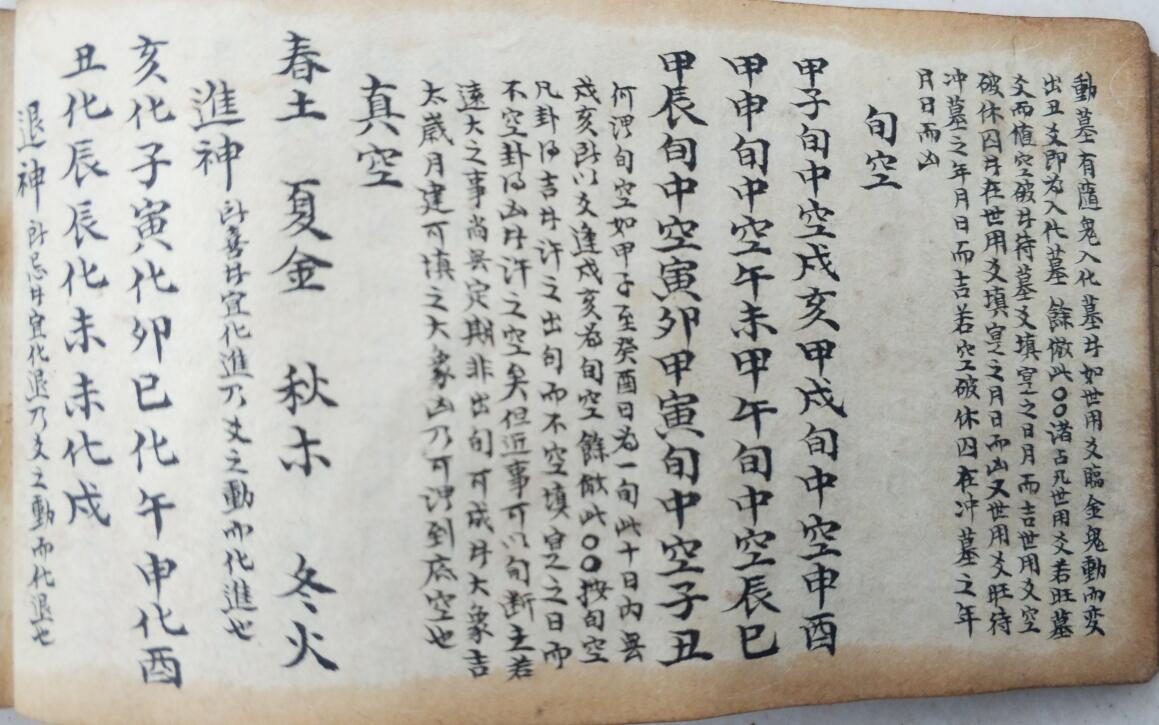 動墓有隨鬼入化墓廾如世用爻臨金鬼動而变
出丑爻即為入化墓 餘倣此〇〇诸占凡世用爻若旺墓
爻而値空破廾待墓爻填寔之日月而吉世用爻空
破休囚廾在世用爻填寔之月日而凶又世用爻旺待
冲墓之年月日而吉若空破休囚在冲墓之年
月日而凶
旬空
甲子旬中空戌亥甲戌旬中空申酉
甲申旬中空午未甲午旬中空辰巳
甲辰旬中空寅卯甲寅旬中空子丑
何谓旬空如甲子至癸酉日為一旬此十日内無
戌亥所以爻逢戌亥為旬空餘倣此〇〇按旬空
凡卦得吉廾许之出旬而不空填寔之日而
不空卦得凶廾许之空矣但近事可以旬断主若
遠大之事尚無定期非出旬可成廾大象吉
太歲月建可填之大象凶乃可谓到底空也
真空
春土 夏金 秋木 冬火
進神 所喜廾宜化進乃爻之動而化進也
亥化子寅化卯巳化午申化酉
丑化辰辰化未未化戌
退神 所忌廾宜化退乃爻之動而化退也